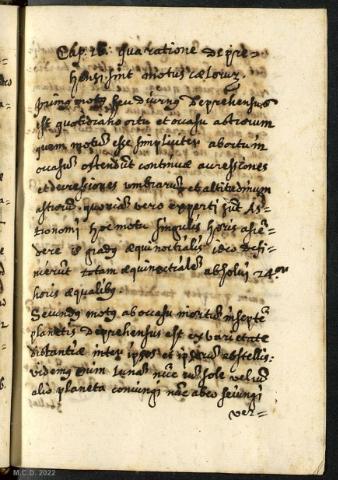 Cap. 16. Qua ratione depre=
hensi sint motus cælorum.
Primus motus seu diurnus deprehensus
est quotidiano ortu et occasu astrorum
quem motum esse simpliciter ab ortum
occasus ostendunt continuæ accessiones
et decessiones umbrarum et altitudinum
astrorum quoniam vero experti sunt As=
tronomi hoc motu singulis horis ascen=
dere 15 gradus æquinoctialis ideo defi=
nierunt totam æquinoctialem absolvi 24
horis æqualibus.
Secundus motus ab occasu in ortum in septem
planetis deprehensus est ex varietate
distantiæ inter ipsos et ipsorum ab stellis:
videmus enim Lunam nunc cum sole vel cum
alio planeta coniungi nunc ab eo seiungi
ver=
M.C.D. 2022